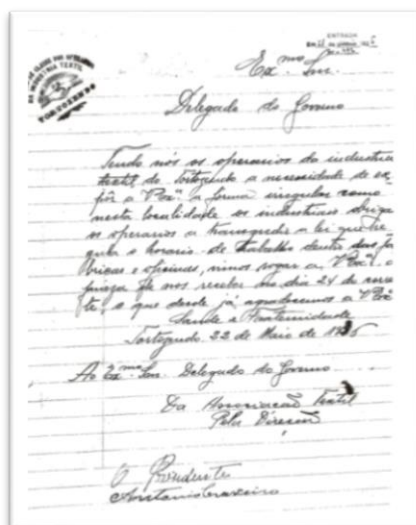 ENTRADA
Ex.mo Snr.
Delegado do Governo
Tendo nós os operarios da industria
textil do Tortozendo a necessidade de ex-
pôr a V Exa. a forma irregular como
nesta localidade os industriaes obrigam
os operarios a transgredir a lei que re-
gula o horario de trabalho dentro das fa
bricas e oficinas, vimos rogar a V Exa. a
fineza de nos receber no dia 24 do corren
te, o que desde já agradecemos a V Exa
Saude e Fraternidade
Tortozendo 22 de Maio de
Ao Exmo Snr. Delegado do Governo
Da Associação Textil
Pela Direcção
O Presidente
Antonio
INDUSTRIA TEXTIL
TORTOZENDO